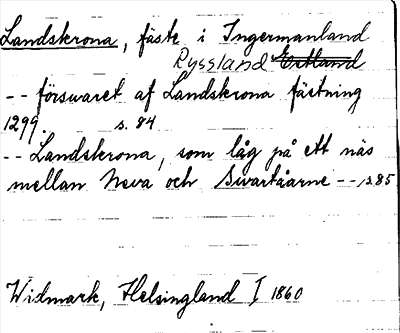 Landskrona, fäste i Ingermanland
Ryssland Estland
-- försvaret af Landskrona fästning
1299. s. 84
-- Landskrona, som låg på ett näs
mellan Neva och Svartåarne -- s.85
Widmark, Helsingland I 1860